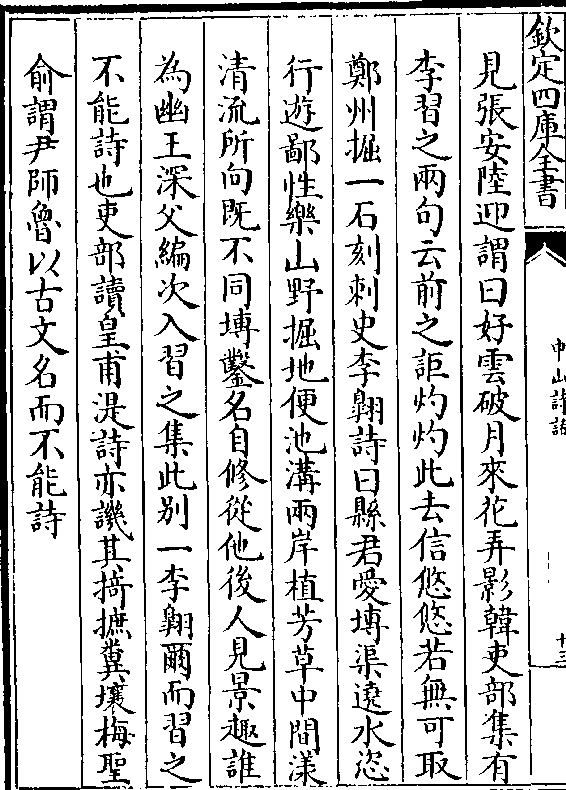 欽定四庫全書
中山詩話
十三
見張安陸迎謂曰好雲破月來花弄影韓吏部集有
李習之兩句云前之詎灼灼此去信悠悠若無可取
鄭州掘一石刻刺史李翺詩曰縣君愛塼渠遶水恣
行遊鄙性樂山野掘地便池溝兩岸植芳草中間漾
清流所向既不同塼鑿名自修從他後人見景趣誰
為幽王深父編次入習之集此别一李翺爾而習之
不能詩也吏部讀皇甫湜詩亦譏其掎摭糞壤梅聖
俞謂尹師魯以古文名而不能詩